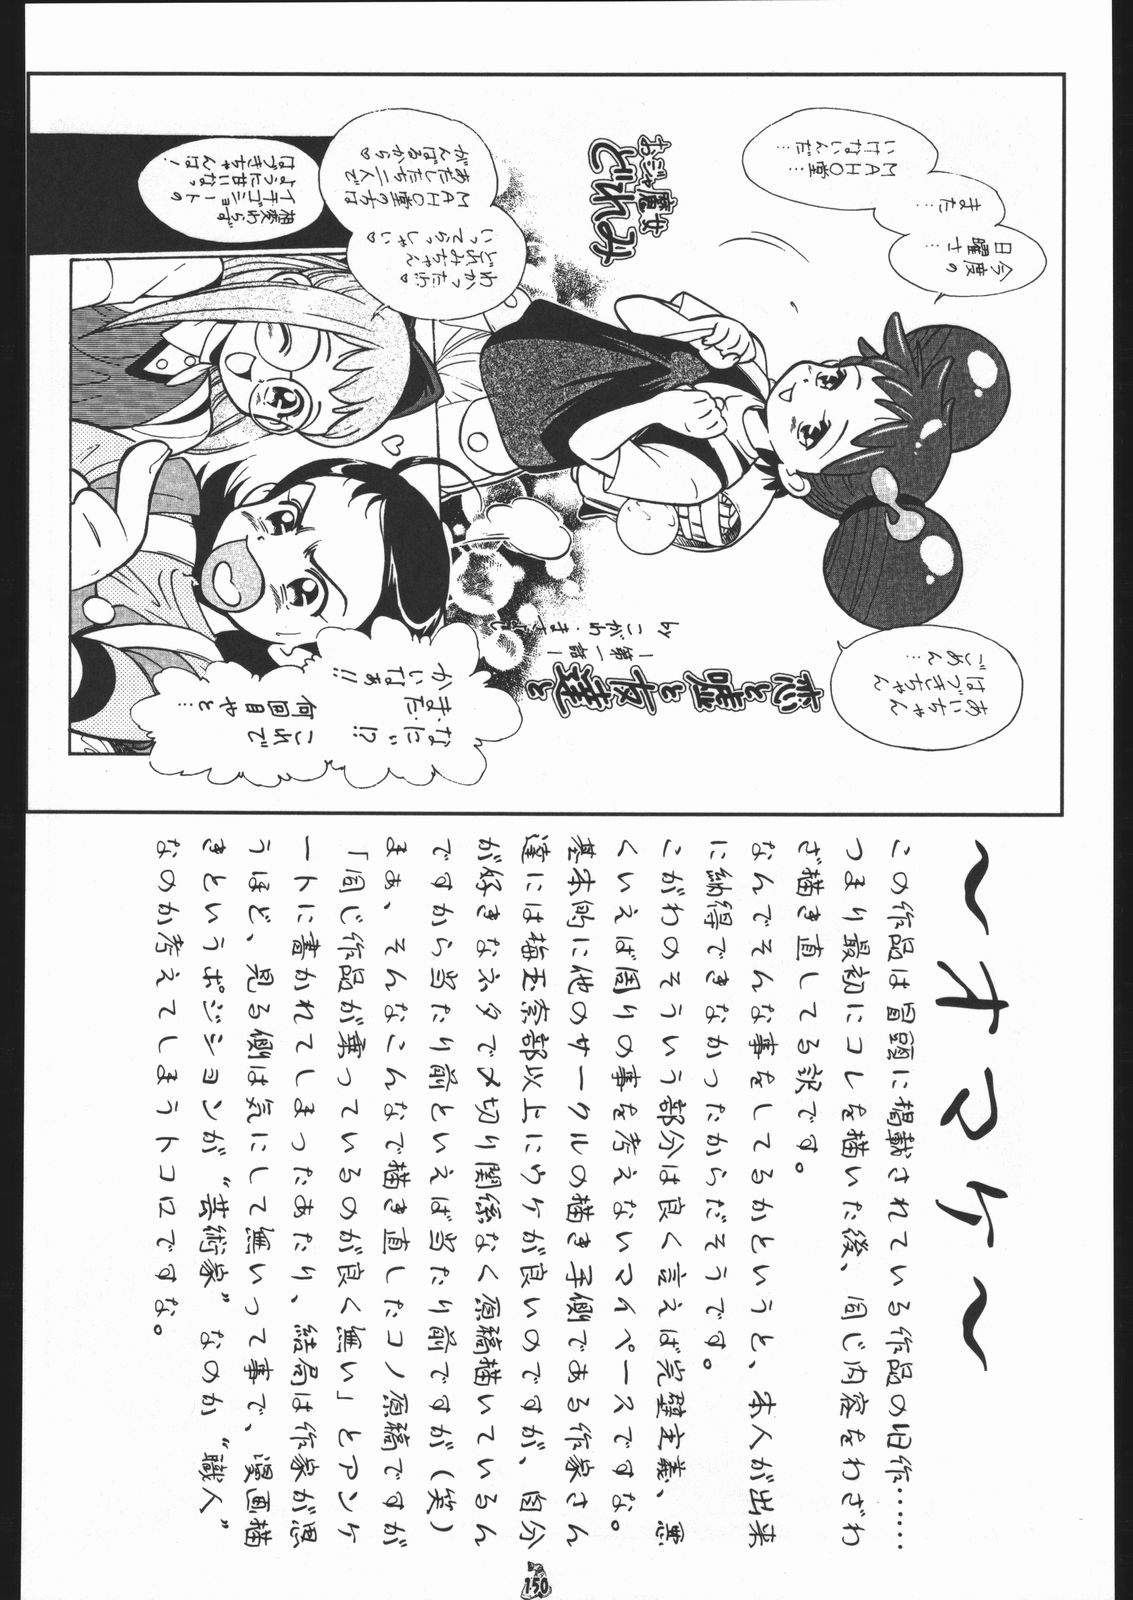 今度の
日曜さ…
また…
MAHO堂…
いけないんだ…
あいちゃん
はづきちゃん
ごめん…
おジャ魔女
どれみ
恋と嘘と友達と
―第一話―
わかったわ♡
どれみちゃん
いってらっしゃい♡
MAHO堂の方は
あたしたち二人で
がんばるから♡
なに!?
また
かいなぁ!!
これで
何回目やと…
相変わらず
はづきちゃんは!
～オマケ～
この作品は冒頭に掲載されている作品の旧作……
つまり最初にコレを描いた後、同じ内容をわざわ
ざ描き直してる訳です。
なんでそんな事をしてるかというと、本人が出来
に納得できなかったからだそうです。
こがわのそういう部分は良く言えば完璧主義、悪
くいえば周りの事を考えないマイペースですな。
基本的に他のサークルの描き手側である作家さん
達には梅玉奈部以上にウケが良いのですが、自分
が好きなネタで〆切り関係なく原稿描いているん
ですから当たり前といえば当たり前ですが(笑)
まぁ、そんなこんなで描き直したコノ原稿ですが
「同じ作品が乗っているのが良く無い」とアンケ
ートに書かれてしまったあたり、結局は作家が思
うほど、見る側は気にして無いって事で、漫画描
きというポジションが“芸術家”なのか“職人”
なのか考えてしまうトコロですな。
150